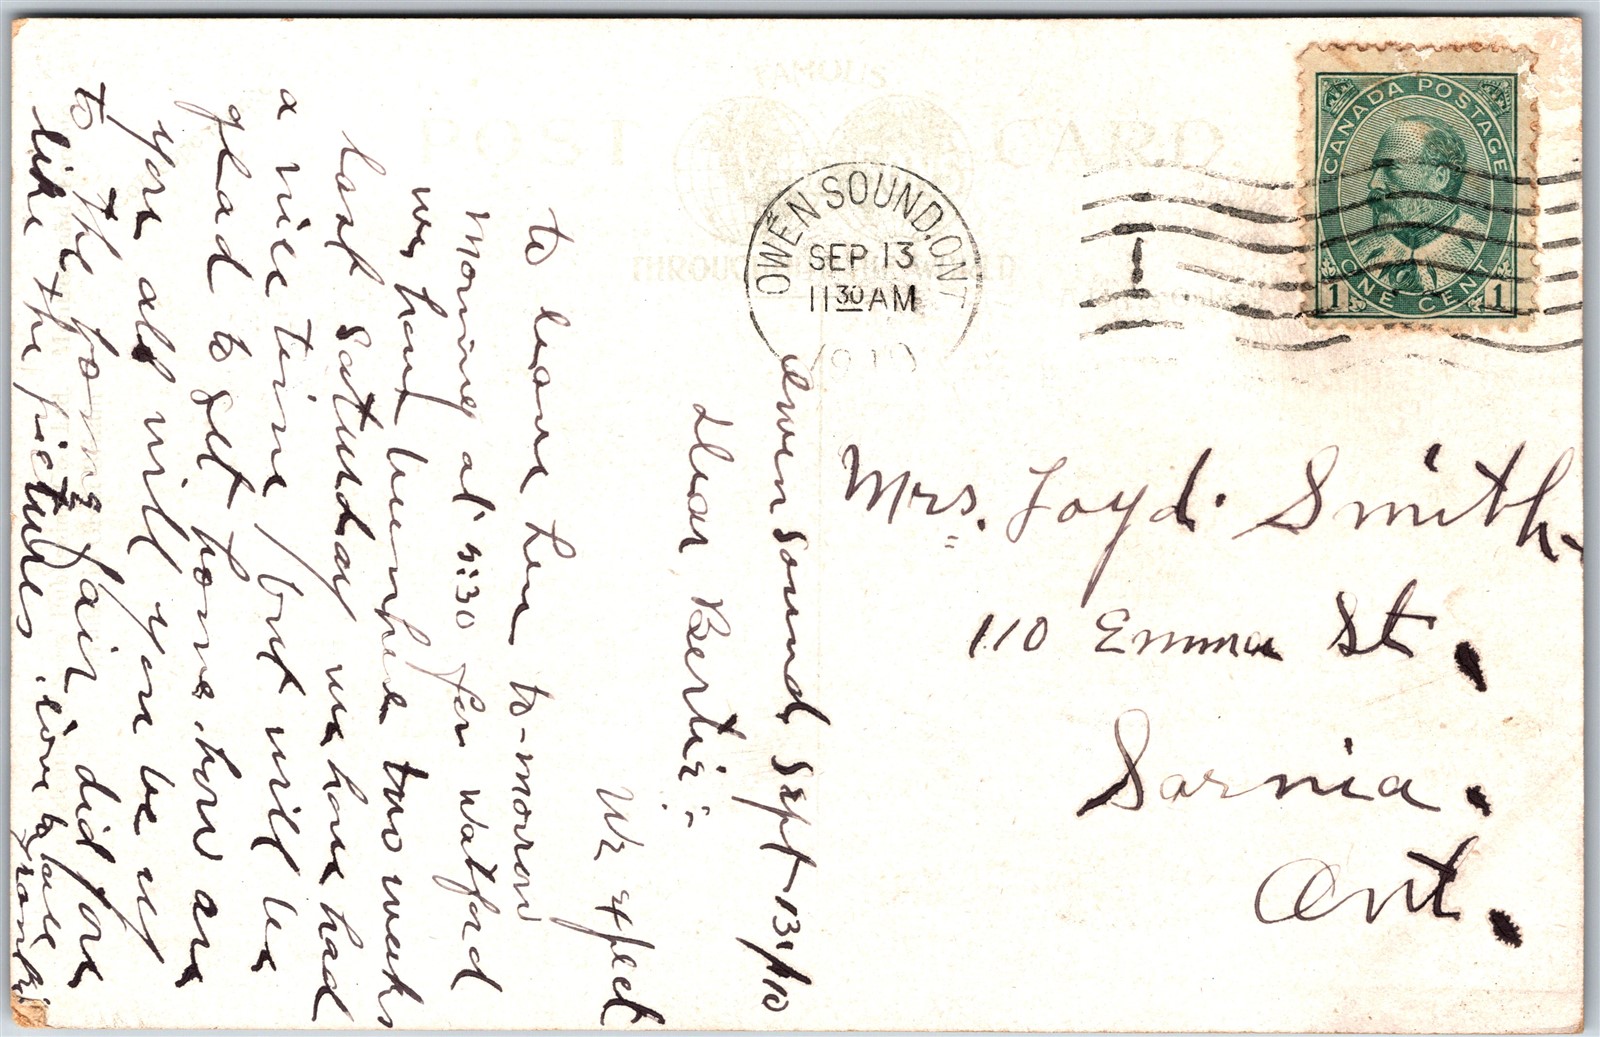 FAMOUS
POST CARD
THROUGHOUT THE WORLD
OWEN SOUND, ONT
SEP 13
11 30 AM
1910
CANADA POSTAGE
1 ONE CENT 1
Mrs. Loyd Smith
110 Emma St.
Sarnia.
Ont.
Owen Sound Sept 13/10
Dear Bertie:-
We expect
to leave here to-morow
morning at 5:30 for Watford
we have been here two weeks
last Saturday we have had
a nice time but will be
glad to get home. how are
you all will you be up
to the fair did for
like the pictures. love to all